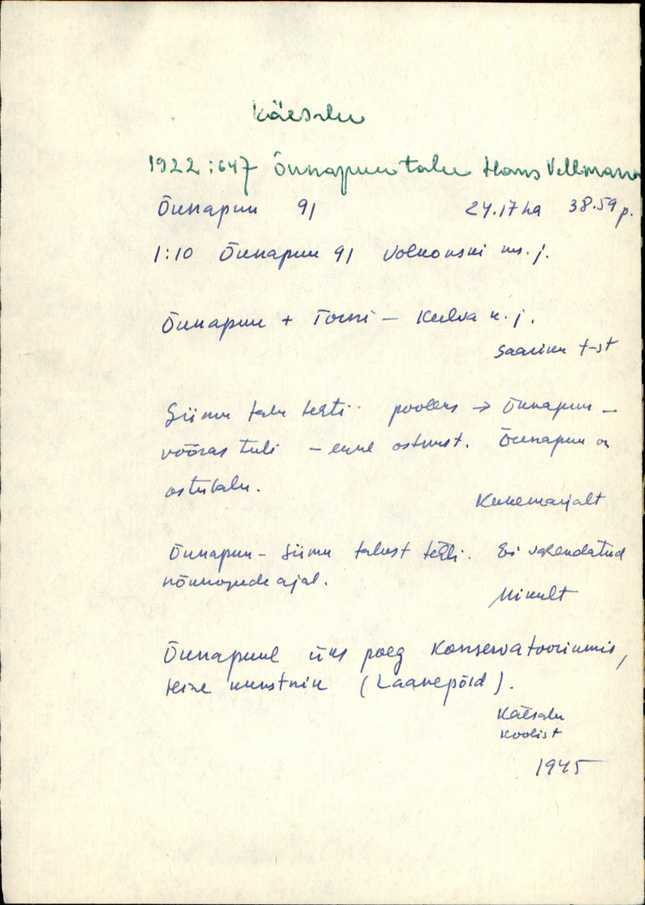 Käesalu
1922:647 Õunapuu talu Hans Vellmann
Õunapuu 91 24.17 ha 38.59 p.
1:10 Õunapuu 91 Volkonski ms. j.
Õunapuu + Torni – Keelva k. j.
Saariku t-st
Siimu talu tehti pooleks → Õunapuu –
võõras tuli – enne ostmist. Õunapuu on
ostutalu.
Kukemarjalt
Õunapuu – Siimu talust tehti. Ei vahendatud
nõunogude ajal.
Mikult
Õunapuul üks poeg Konservatooriumis,
teine kunstnik (Laanepõld).
Käesalu
Koolist
1945